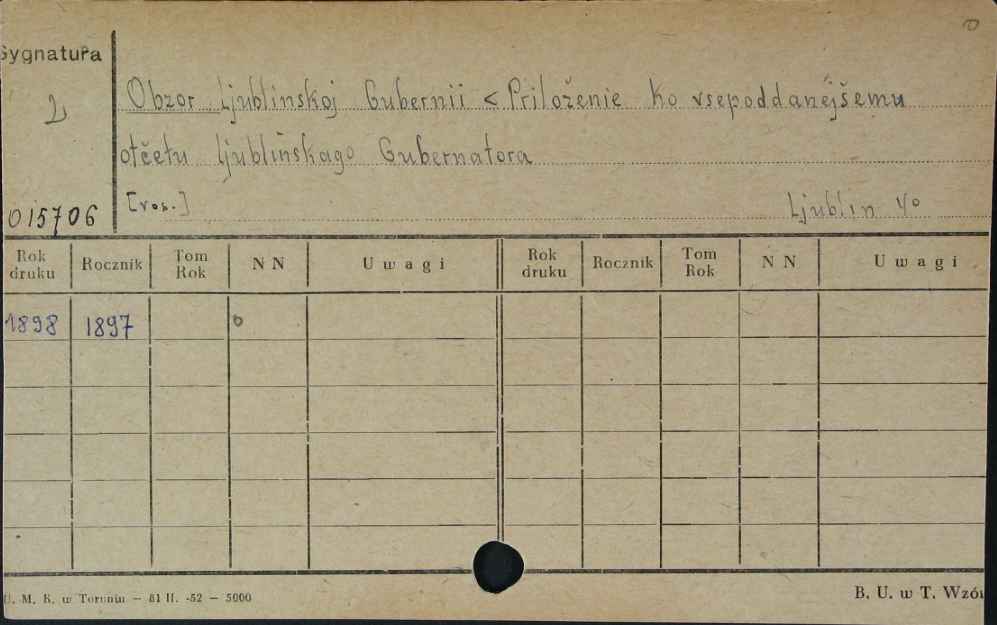 Sygnatura
Obzor Ljublinskoj Gubernii < Priloženie ko vsepoddanějšemu
otčetu Ljublinskago Gubernatora
[ros.]
Ljublin 4°
015706
Rok druku Rocznik Tom Rok NN Uwagi Rok druku Rocznik Tom Rok NN Uwagi
1898 1897 0
U. M. K. w Toruniu — 81 II. -52 — 5000
B. U. w T. Wzór